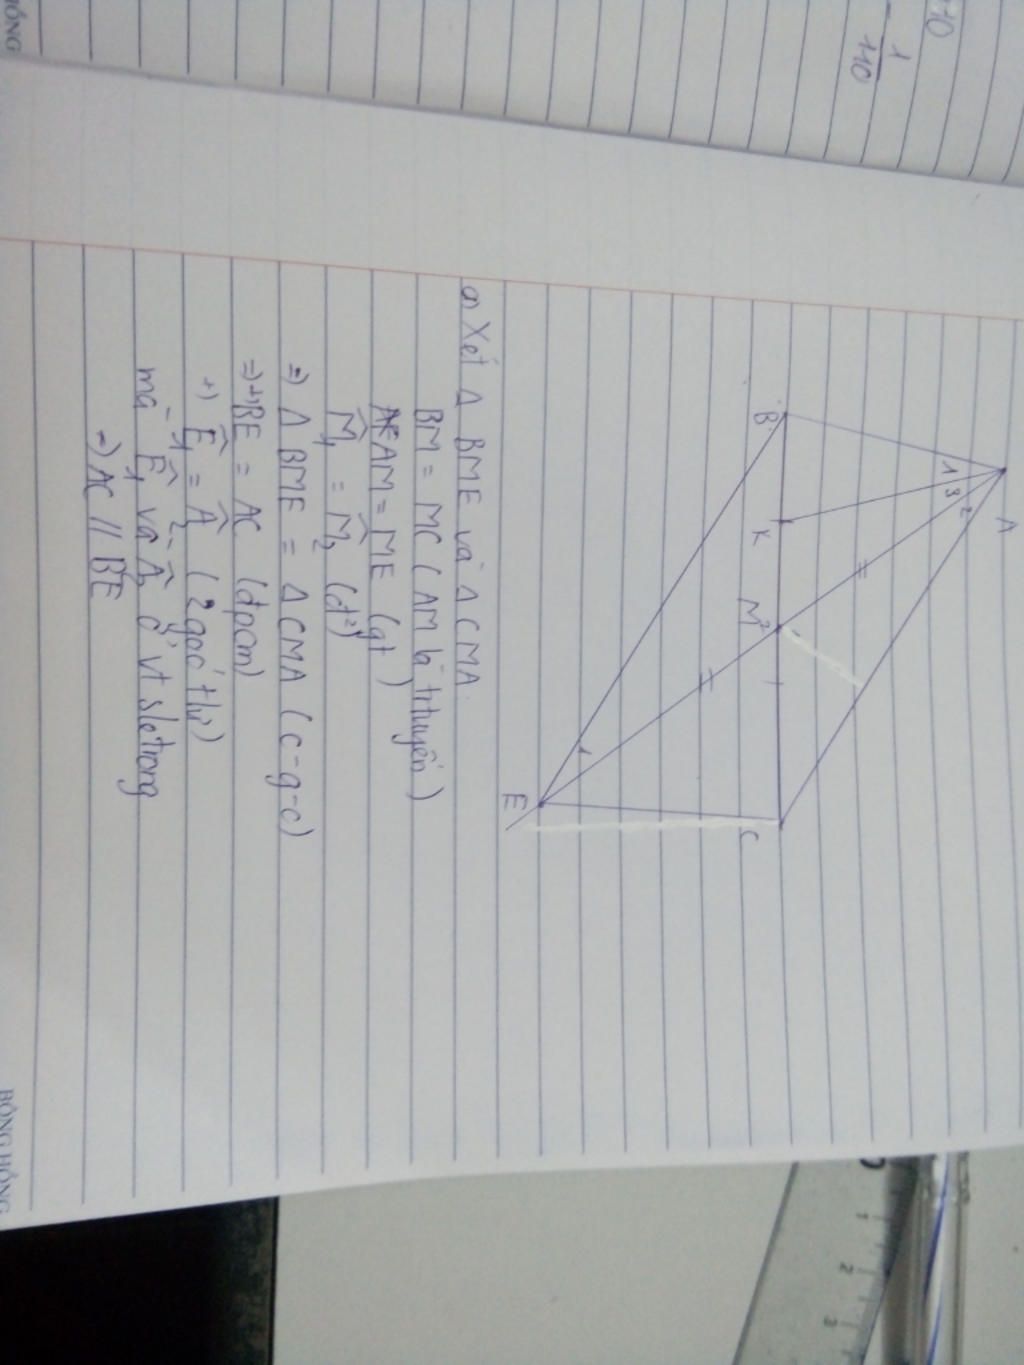 +10
1
110
A
1
3
2
B
K
M
2
1
C
1
E
a) Xét Δ BME và Δ CMA.
BM = MC (AM là trtuyến)
AM = ME (gt)
M̂₁ = M̂₂ (đ²)
=) Δ BME = Δ CMA (c-g-c)
=) +) BE = AC (đpcm)
+) Ê₁ = Â₂ (2 góc t/ư)
mà Ê₁ và Â₂ ở vt sle trong
=) AC // BE
HỒNG
BÔNG HỒNG
0
1
2
3